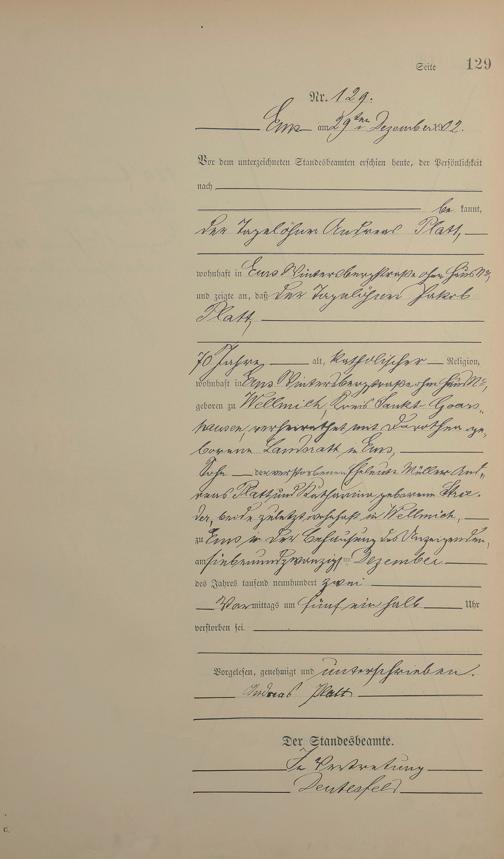 Seite 129
Nr. 129.
Ems am 29ten Dezember 1902.
Vor dem unterzeichneten Standesbeamten erschien heute, der Persönlichkeit
nach
be kannt,
der Tagelöhner Andreas Platt,
wohnhaft in Ems Wintersbergstraße ohne Haus Nr,
und zeigte an, daß der Tagelöhner Jakob
Platt,
70 Jahre, alt, katholischer Religion,
wohnhaft in Ems Wintersbergstraße ohne Haus Nr,
geboren zu Wellmich, Kreis Sankt Goars-
hausen, verheirathet mit Dorothea ge-
borene Landrath, in Ems,
Sohn der verstorbenen Eheleute Müller And-
reas Platt und Katharina geborene
beide zuletzt wohnhaft in Wellmich,
zu Ems in der Behausung des Anzeigenden,
am siebenundzwanzigsten Dezember
des Jahres tausend neunhundert zwei
Vormittags um fünf ein halb Uhr
verstorben sei.
Vorgelesen, genehmigt und unterschrieben.
Andreas Platt
Der Standesbeamte.
In Vertretung
C.